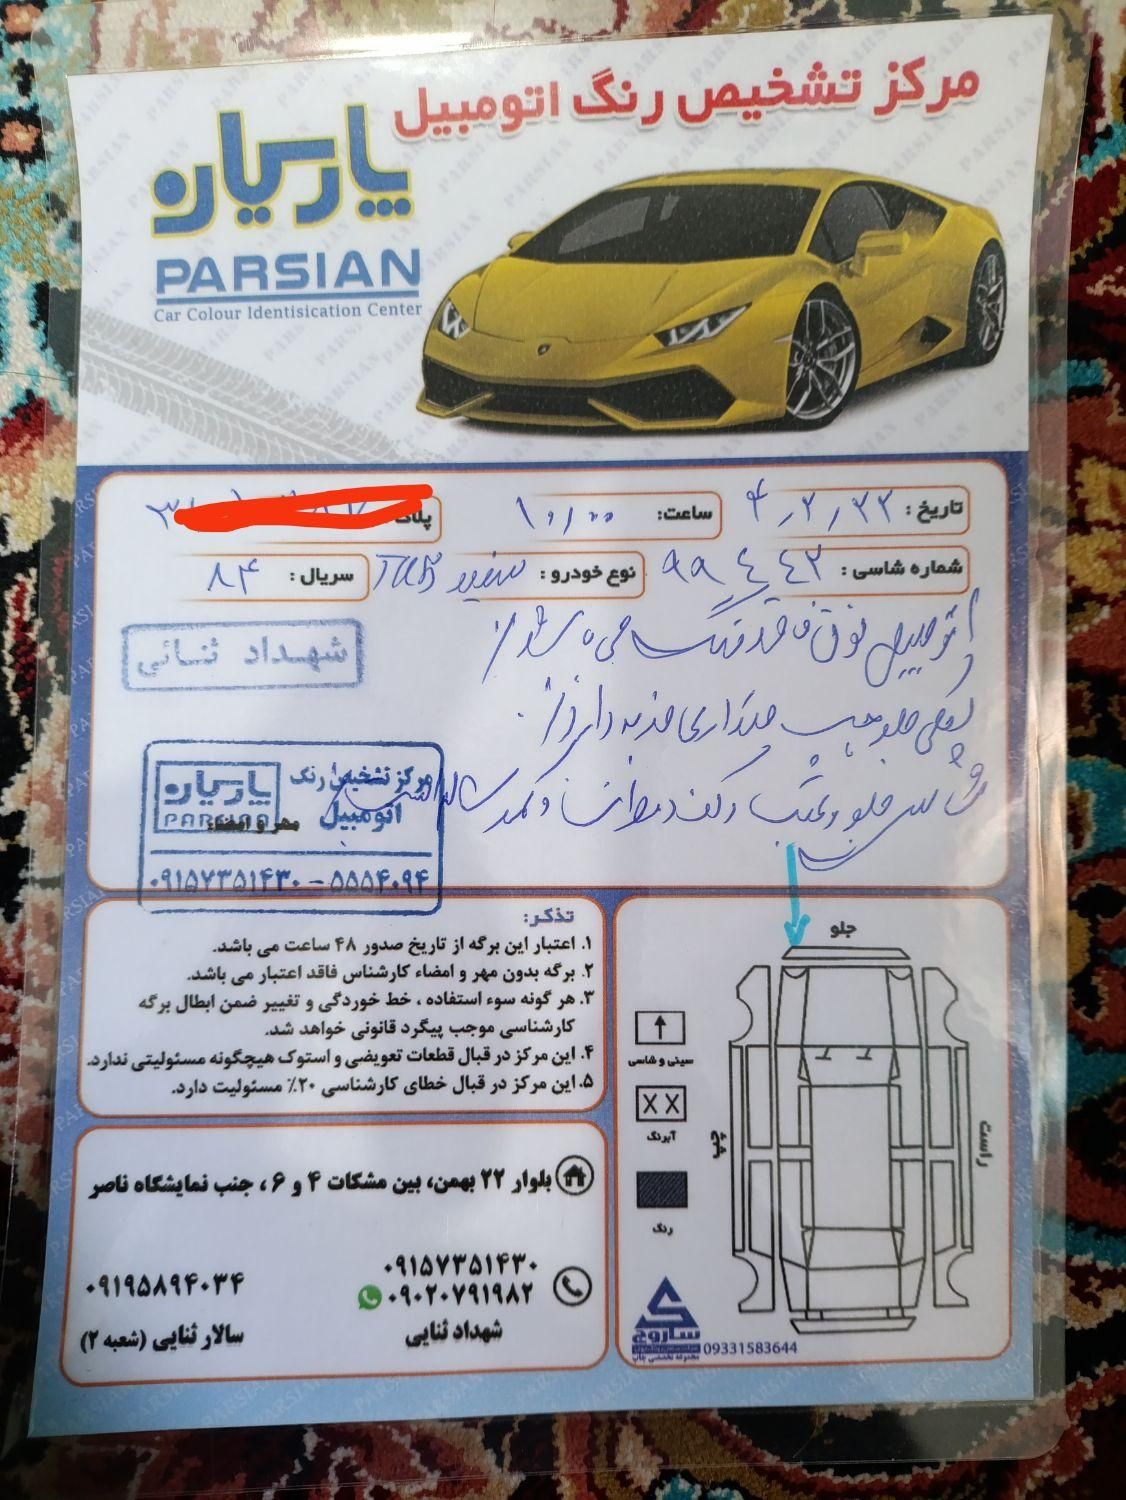 مرکز تشخیص رنگ اتومبیل
پارسیان
PARSIAN
Car Colour Identisication Center
تاریخ :
ساعت: ۱۰٫۰۰
پلاک
شماره شاسی : ۹۹ ۴ ۴۴۳
نوع خودرو : سفید TU5
سریال : ۸۴
اتومبیل فوق فاقد رنگ می باشد
شهداد ثنائی
جلو چپ ضربه دارد
جلو و عقب
مرکز تشخیص رنگ
اتومبیل
پارسیان
PARSIAN
مهر و امضاء:
۰۹۱۵۷۳۵۱۴۳۰ - ۵۵۵۴۰۹۴
تذکر:
۱. اعتبار این برگه از تاریخ صدور ۴۸ ساعت می باشد.
۲. برگه بدون مهر و امضاء کارشناس فاقد اعتبار می باشد.
۳. هر گونه سوء استفاده ، خط خوردگی و تغییر ضمن ابطال برگه
کارشناسی موجب پیگرد قانونی خواهد شد.
۴. این مرکز در قبال قطعات تعویضی و استوک هیچگونه مسئولیتی ندارد.
۵. این مرکز در قبال خطای کارشناسی ۲۰٪ مسئولیت دارد.
جلو
سینی و شاسی
X X
آبرنگ
رنگ
چپ
راست
ساروج
مجموعه تخصصی چاپ
09331583644
بلوار ۲۲ بهمن، بین مشکات ۴ و ۶ ، جنب نمایشگاه ناصر
۰۹۱۵۷۳۵۱۴۳۰
۰۹۰۲۰۷۹۱۹۸۲
شهداد ثنایی
۰۹۱۹۵۸۹۴۰۳۴
سالار ثنایی (شعبه ۲)